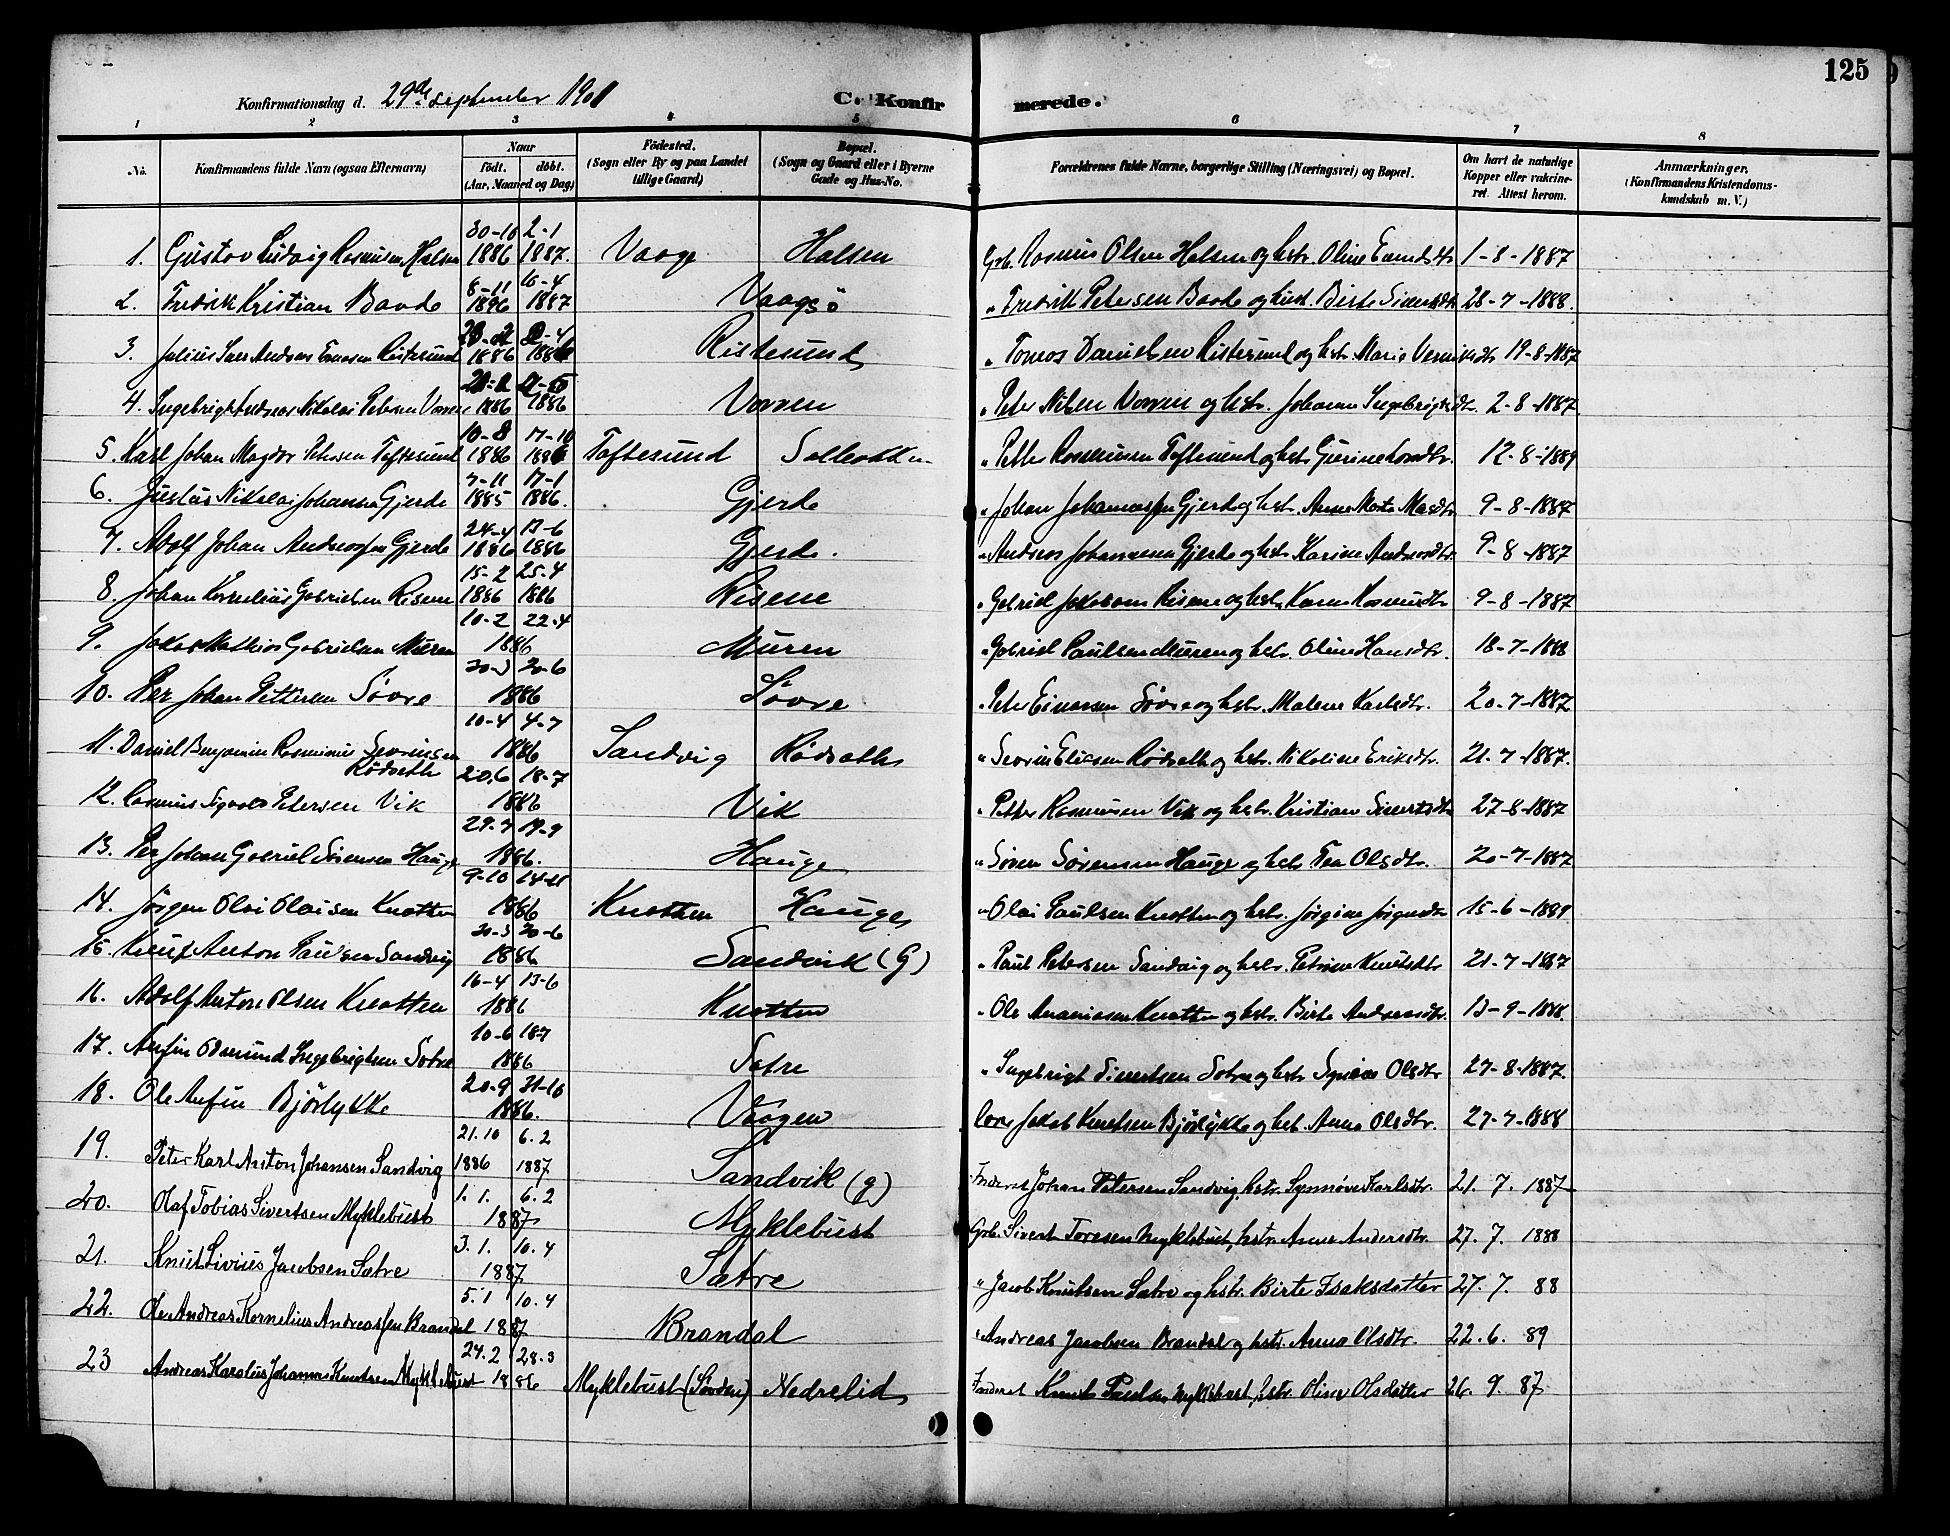 125
Konfirmationsdag d. 29de september 1901 C. Konfirmerede.
1 2 3 4 5 6 7 8
No. Konfirmandens fulde Navn (ogsaa Efternavn) Naar født. døbt. (Aar, Maaned og Dag) Fødested. (Sogn eller By og paa Landet tillige Gaard) Bopæl. (Sogn og Gaard eller i Byerne Gade og Hus-No. Forældrenes fulde Navne, borgerlige Stilling (Næringsvei) og Bopæl. Om havt de naturlige Kopper eller vakcineret. Attest herom. Anmærkninger. (Konfirmandens Kristendomskundskab m. V.)
1. Gustav Ludvig Rasmusen Halsen 30-10 1886 2-1 1887. Vaage Halsen Grb. Rasmus Olsen Halsen og hstr. Oline 1-8-1887
2. Fredrik Kristian Baode 8-11 1886 16-4 1887 Vaagsö " Fredrik Petersen Baode og hust. Birte Sivertsdtr 28-7-1888.
3. Julius Andreas Ristesund 1886 1886 Ristesund " Tomas Danielsen Ristesund og hstr. Marie 19-8-1887
4. Ingebrigt Andreas Nikolai Petersen Vorren 1886 1886 Vorren " Peter Nilsen Vorren og hstr. Johanne Ingebrigtsdtr. 2-8-1887
5. Karl Johan Magdor Petersen Toftesund 10-8 1886 17-10 1886 Toftesund " Petter Rasmussen Toftesund og hstr. 12-8-1889
6. Justus Nikolai Johansen Gjerde 7-11 1885 17-1 1886. Gjerde " Johan Johannessen Gjerde og hstr. Anne Marte Masdtr. 9-8-1887
7. Adolf Johan Andreassen Gjerde 24-4 1886 13-6 1886 Gjerde. " Andreas Johannesen Gjerde og hstr. Karine Andreasdtr. 9-8-1887
8. Johan Kornelius Gabrielsen Risene 15-2 1886 25-4 1886 Risene " Gabriel Jakobsen Risene og hstr. Karen Rasmusdtr 9-8-1887
9. Jakob Mathias Gabrielsen Muren 10-2 22-4 1886 Muren " Gabriel Paulsen Muren og hstr. Oline Hansdtr. 18-7-1888
10. Per Johan Pettersen Sövre 20-3 20-6 1886 Sövre " Peter Einarsen Sövre og hstr. Malene Karlsdtr. 20-7-1887
11. Daniel Benjamin Rasmus Sevrinsen Rödseth 10-4 4-7 1886 Sandvig Rödseth " Sevrin Eliasen Rödseth og hstr. Nikoline Eriksdtr. 21-7-1887.
12. Rasmus Sigvald Petersen Vik 20.6 18-7 1886 Vik " Petter Rasmussen Vik og hstr. Kristiane Sivertsdtr 27-8-1887
13. Per Johan Gabriel Sörensen Hauge 29-7 19-9 1886. Hauge " Sören Sörensen Hauge og hstr. Tea Olsdtr. 20-7-1887
14. Jörgen Olai Olaisen Knotten 9-10 14-11 1886 Knotten Hauge " Olai Paulsen Knotten og hstr. Jörgine Jörgensdtr 15-6-1889
15. Knut Anton Paulsen Sandvig 20-3 20-6 1886 Sandvik (G) " Paul Petersen Sandvig og hstr. Petrine Knutsdtr 21-7-1887
16. Adolf Anton Olsen Knotten 16-4 13-6 1886 Knotten " Ole Ananiasen Knotten og hstr. Birte Andreasdtr. 13-9-1888.
17. Anfin Odmund Ingebrigtsen Sætre 10-6 18-7 1886 Sætre " Ingebrigt Sivertsen Sætre og hstr. Olsdtr 27-8-1887.
18. Ole Anfin Björlykke 20-9 31-10 1886. Vaagen Jakob Knutsen Björlykke og hst. Anna Olsdtr. 27-7-1888
19. Peter Karl Anton Johansen Sandvig 21.10 1886 6.2 1887 Sandvik (g) Inderst Johan Petersen Sandvig, hstr. Synnöve Karlsdtr. 21. 7. 1887
20. Olaf Tobias Sivertsen Myklebust 1. 1. 6. 2 1887 Myklebust Grb. Sivert Toresen Myklebust, hstr. Anne Andersdtr. 27. 7. 1888
21. Knut Livius Jacobsen Sætre 3. 1. 10. 4 1887 Sætre " Jacob Knutsen Sætre og hstr. Birte Isaksdatter 27. 7. 88
22. Ole Andreas Kornelius Andreassen Brandal 5. 1 10. 4 1887 Brandal " Andreas Jacobsen Brandal og hstr. Anna Olsdtr. 22. 6. 89
23 Andreas Karolius Johannes Knutsen Myklebust 24. 2 28. 3 1886 Myklebust (Sövden) Nedrelid Inderst Knut Paulsen Myklebust, hstr. Oline Olsdatter 26. 9. 87